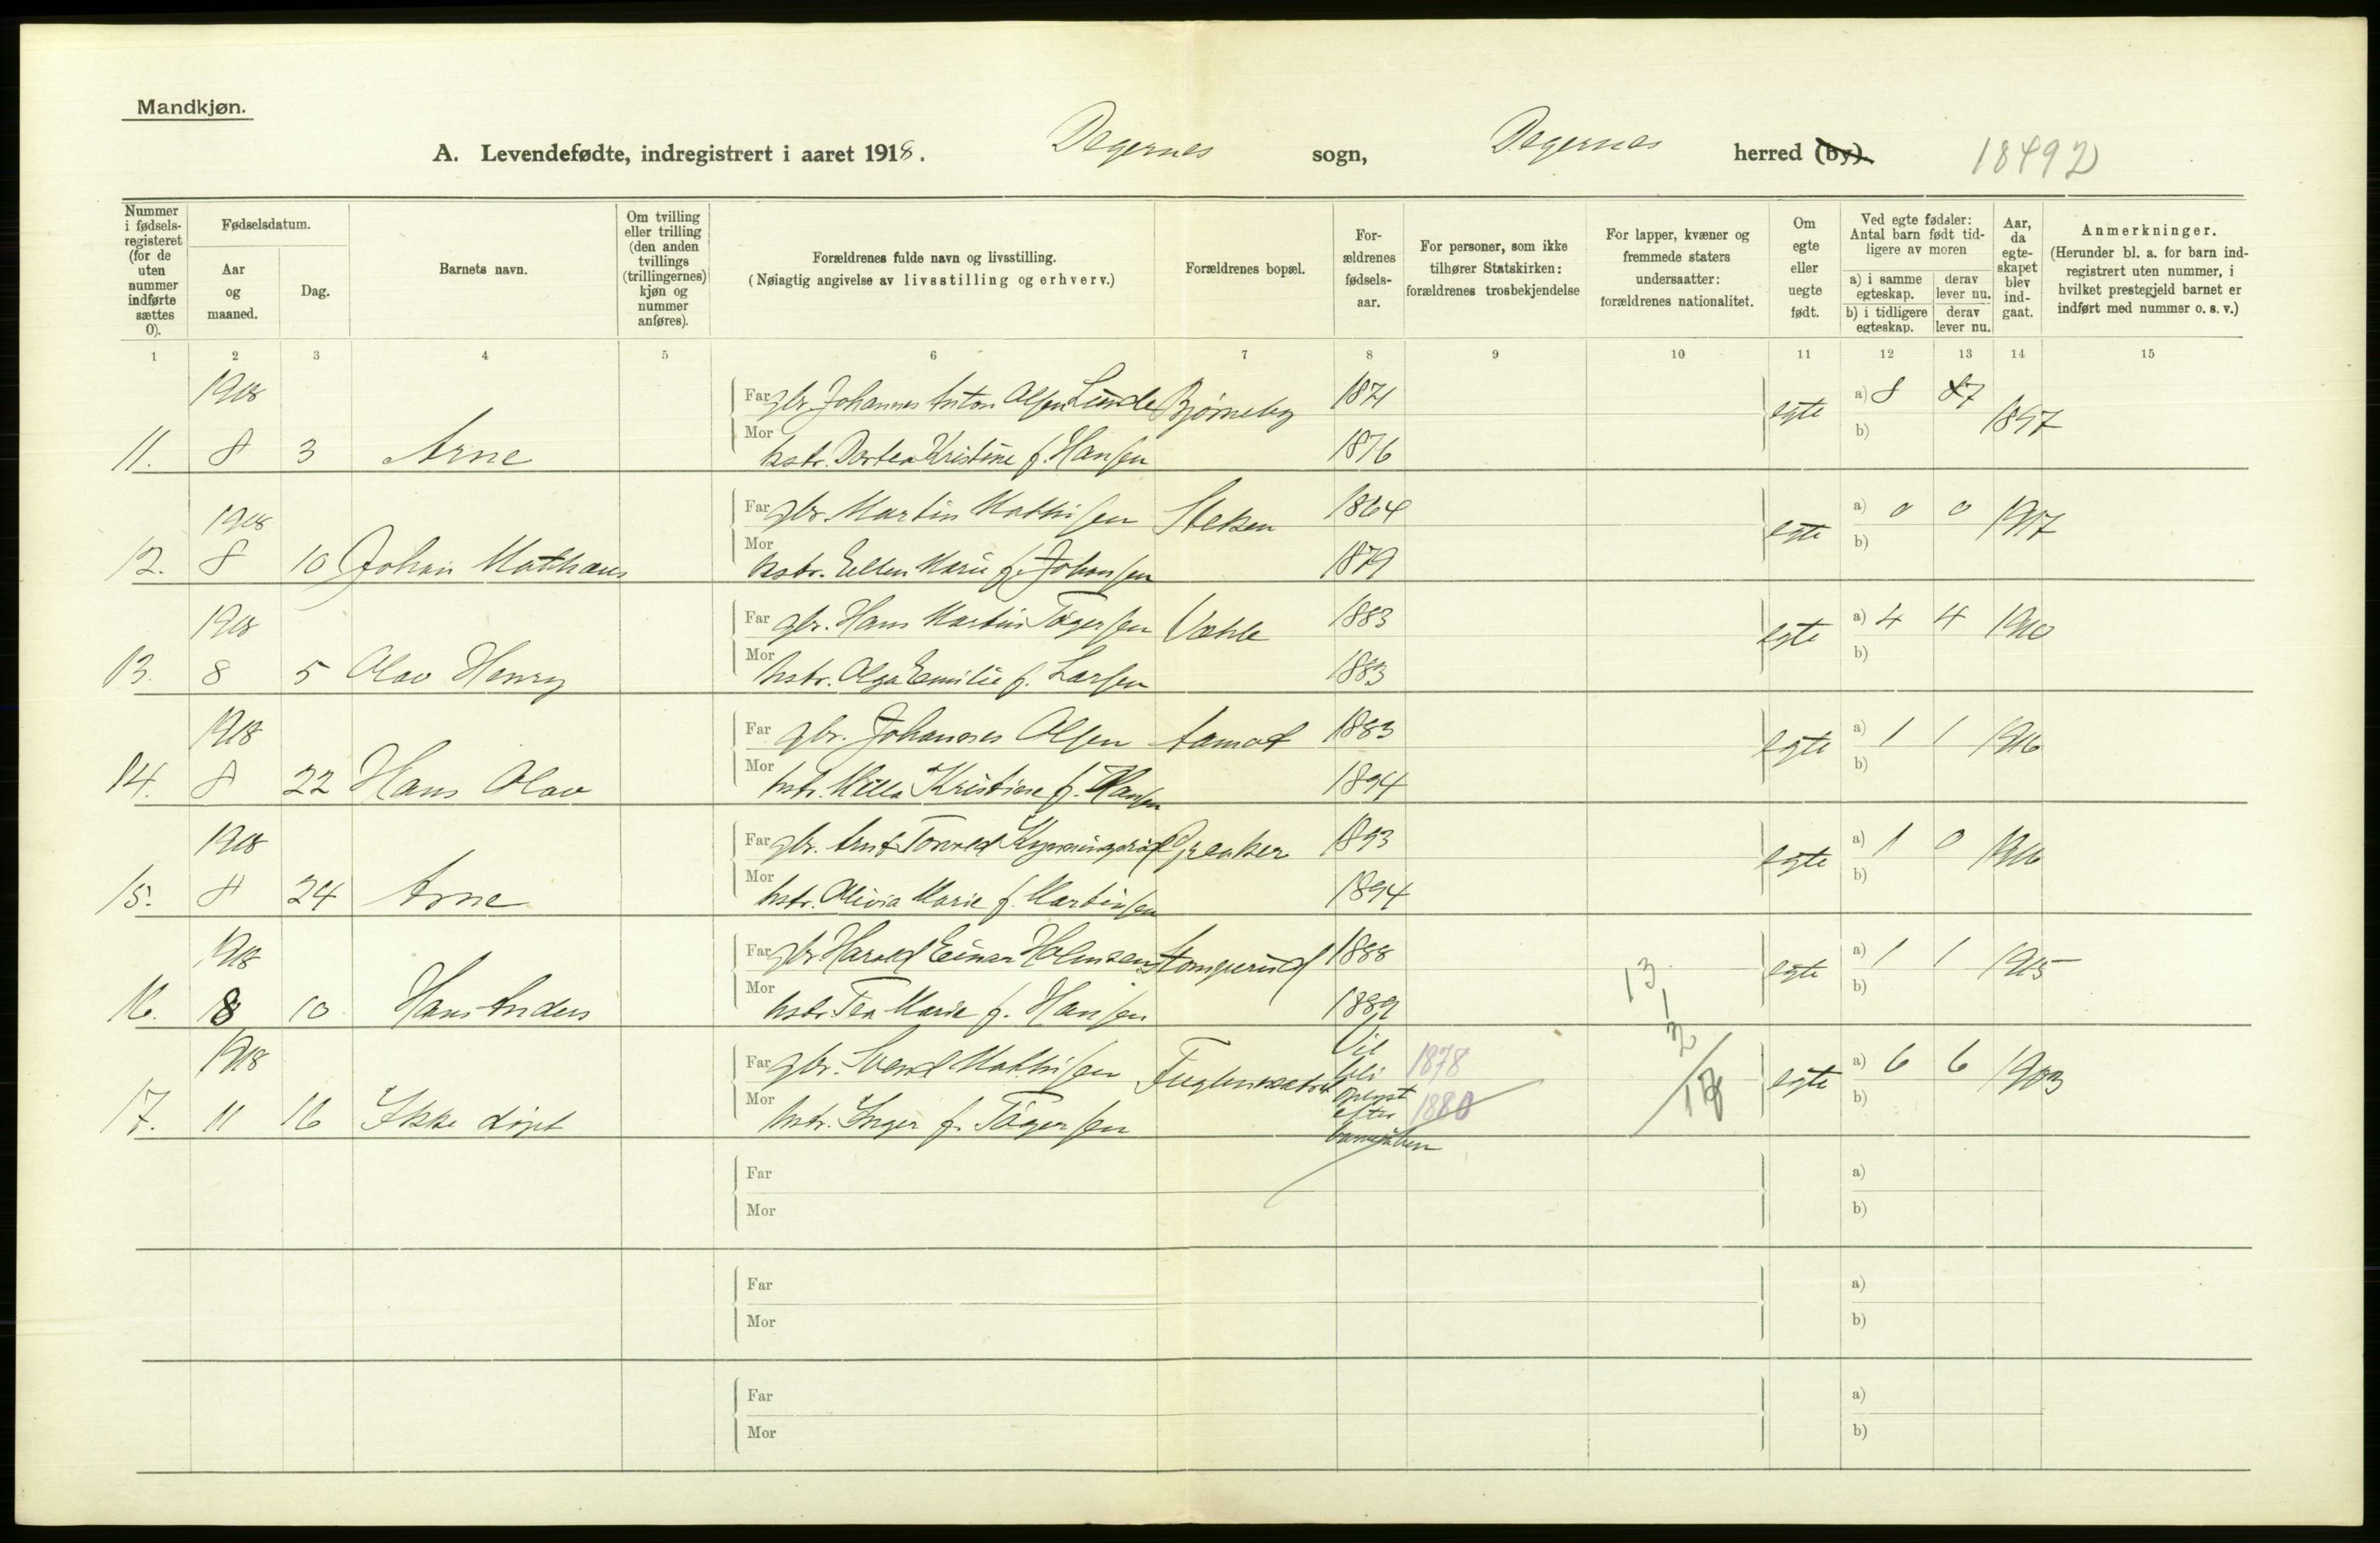 Mandkjøn.
A. Levendefødte, indregistrert i aaret 1918. Degernes sogn, Degernes herred (by). 18492
Nummer i fødsels-registeret (for de uten nummer indførte sættes 0).
Fødselsdatum.
Aar og maaned.
Dag.
Barnets navn.
Om tvilling eller trilling (den anden tvillings (trillingernes) kjøn og nummer anføres).
Forældrenes fulde navn og livsstilling.
(Nøiagtig angivelse av livsstilling og erhverv.)
Forældrenes bopæl.
For-ældrenes fødsels-aar.
For personer, som ikke tilhører Statskirken: forældrenes trosbekjendelse
For lapper, kvæner og fremmede staters undersaatter: forældrenes nationalitet.
Om egte eller uegte født.
Ved egte fødsler: Antal barn født tid-ligere av moren
a) i samme egteskap. derav lever nu.
b) i tidligere egteskap. derav lever nu.
Aar, da egte-skapet blev ind-gaat.
Anmerkninger.
(Herunder bl. a. for barn ind-registrert uten nummer, i hvilket prestegjeld barnet er indført med nummer o. s. v.)
1 2 3 4 5 6 7 8 9 10 11 12 13 14 15
1918 Far gbr. Johannes Anton Olsen Lunde Bjørneby 1871 egte a) 8 7 1897
11. 8 3 Arne Mor hstr. Dortea Kristine f. Hansen 1876 b)
1918 Far gbr. Martin Mathisen Steken 1864 egte a) 0 0 1917
12. 8 10 Johan Mathæus Mor hstr. Ellen Marie f. Johansen 1879 b)
1918 Far gbr. Hans Martin Tøgersen Væhle 1883 egte a) 4 4 1910
13. 8 5 Olav Henry Mor hstr. Olga Emilie f. Larsen 1883 b)
1918 Far gbr. Johannes Olsen Aamot 1883 egte a) 1 1 1916
14. 8 22 Hans Olav Mor hstr. Milla Kristine f. Hansen 1894 b)
1918 Far gbr. Arnt Torvald Greaker 1893 egte a) 1 0 1916
15. 8 24 Arne Mor hstr. Olivia Marie f. Martinsen 1894 b)
1918 Far gbr. Harald Einar Holmsen Stomperud 1888 13 egte a) 1 1 1915
16. 8 10 Hans Anders Mor hstr. Tea Marie f. Hansen 1889 1 b)
1918 Far gbr. Svend Mathisen Vil bli 1878 2 egte a) 6 6 1903
17. 11 16 Ikke døpt Mor hstr. Inger f. Tøgersen oplyst efter 1880 b)
Far a)
Mor b)
Far a)
Mor b)
Far a)
Mor b)